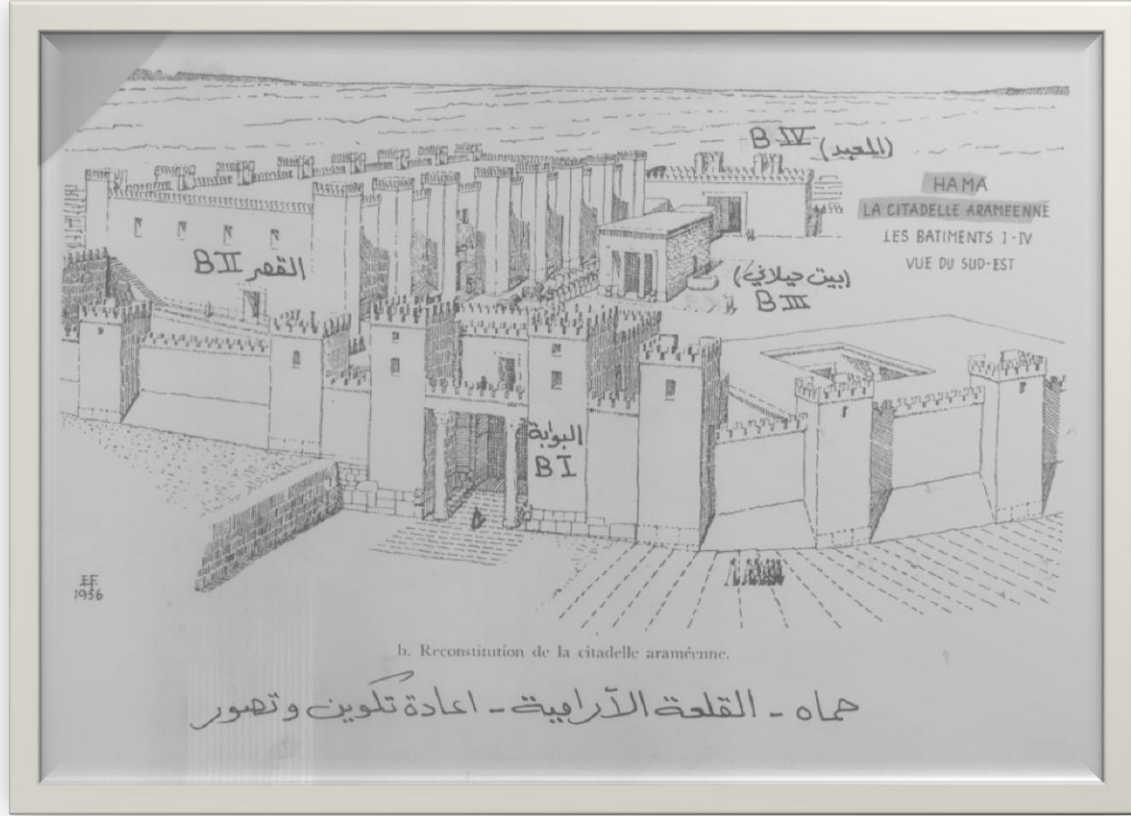 B IV (المعبد)
HAMA
LA CITADELLE ARAMEENNE
LES BATIMENTS I-IV
VUE DU SUD-EST
القصر B II
(بيت حيلاني)
B III
البوابة
B I
EF
1956
b. Reconstitution de la citadelle araméenne.
حماه - القلعة الآرامية - اعادة تكوين وتصور